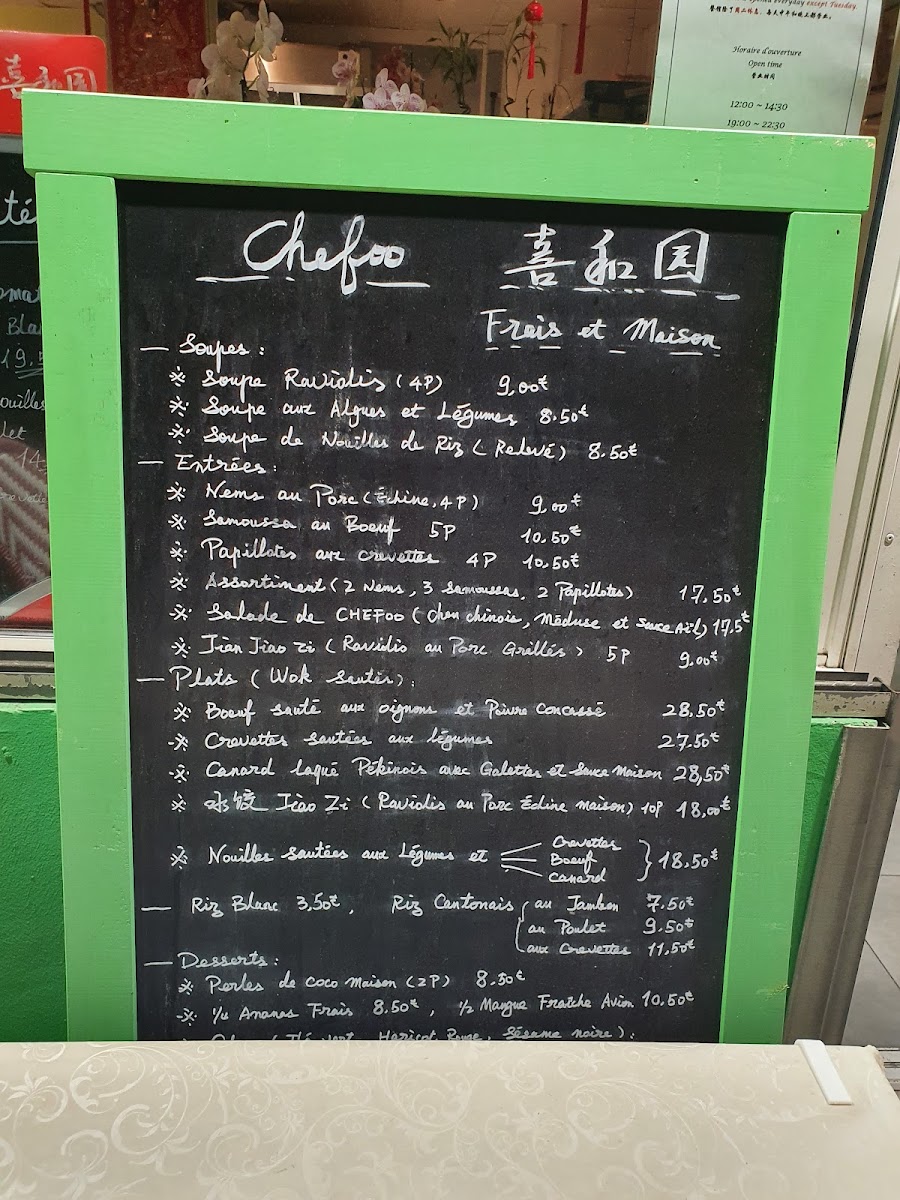 opened everyday except Tuesday.
Horaire d'ouverture
Open time
营业时间
12:00 ~ 14:30
19:00 ~ 22:30
喜和园
té
Bla
19,5
ouilles
let
14
Chefoo 喜和园
Frais et Maison
— Soupes :
※ Soupe Raviolis (4P) 9,00€
※ Soupe aux Algues et Légumes 8.50€
※ Soupe de Nouilles de Riz (Relevé) 8.50€
— Entrées :
※ Nems au Porc (Échine, 4P) 9,00€
※ Samoussa au Boeuf 5P 10.50€
※ Papillotes aux crevettes 4P 10,50€
※ Assortiment (2 Nems, 3 Samoussas, 2 Papillotes) 17,50€
※ Salade de CHEFOO (Chou chinois, Méduse et Sauce Ail) 17,5€
※ Jian Jiao Zi (Raviolis au Porc Grillés) 5P 9,00€
— Plats (Wok Sautés) :
※ Boeuf sauté aux oignons et Poivre concassé 28,50€
※ Crevettes sautées aux légumes 27.50€
※ Canard laqué Pékinois avec Galettes et Sauce Maison 28,50€
※ 水饺 Jiao Zi (Raviolis au Porc Échine maison) 10P 18,00€
※ Nouilles sautées aux Légumes et Crevettes
Boeuf } 18,50€
Canard
— Riz Blanc 3,50€, Riz Cantonais (au Jambon 7.50€
au Poulet 9.50€
aux Crevettes 11,50€
— Desserts :
※ Perles de coco Maison (2P) 8.50€
※ 1/4 Ananas Frais 8.50€, 1/2 Mangue Fraîche Avion 10.50€
Haricot Rouge, Sésame noire) :